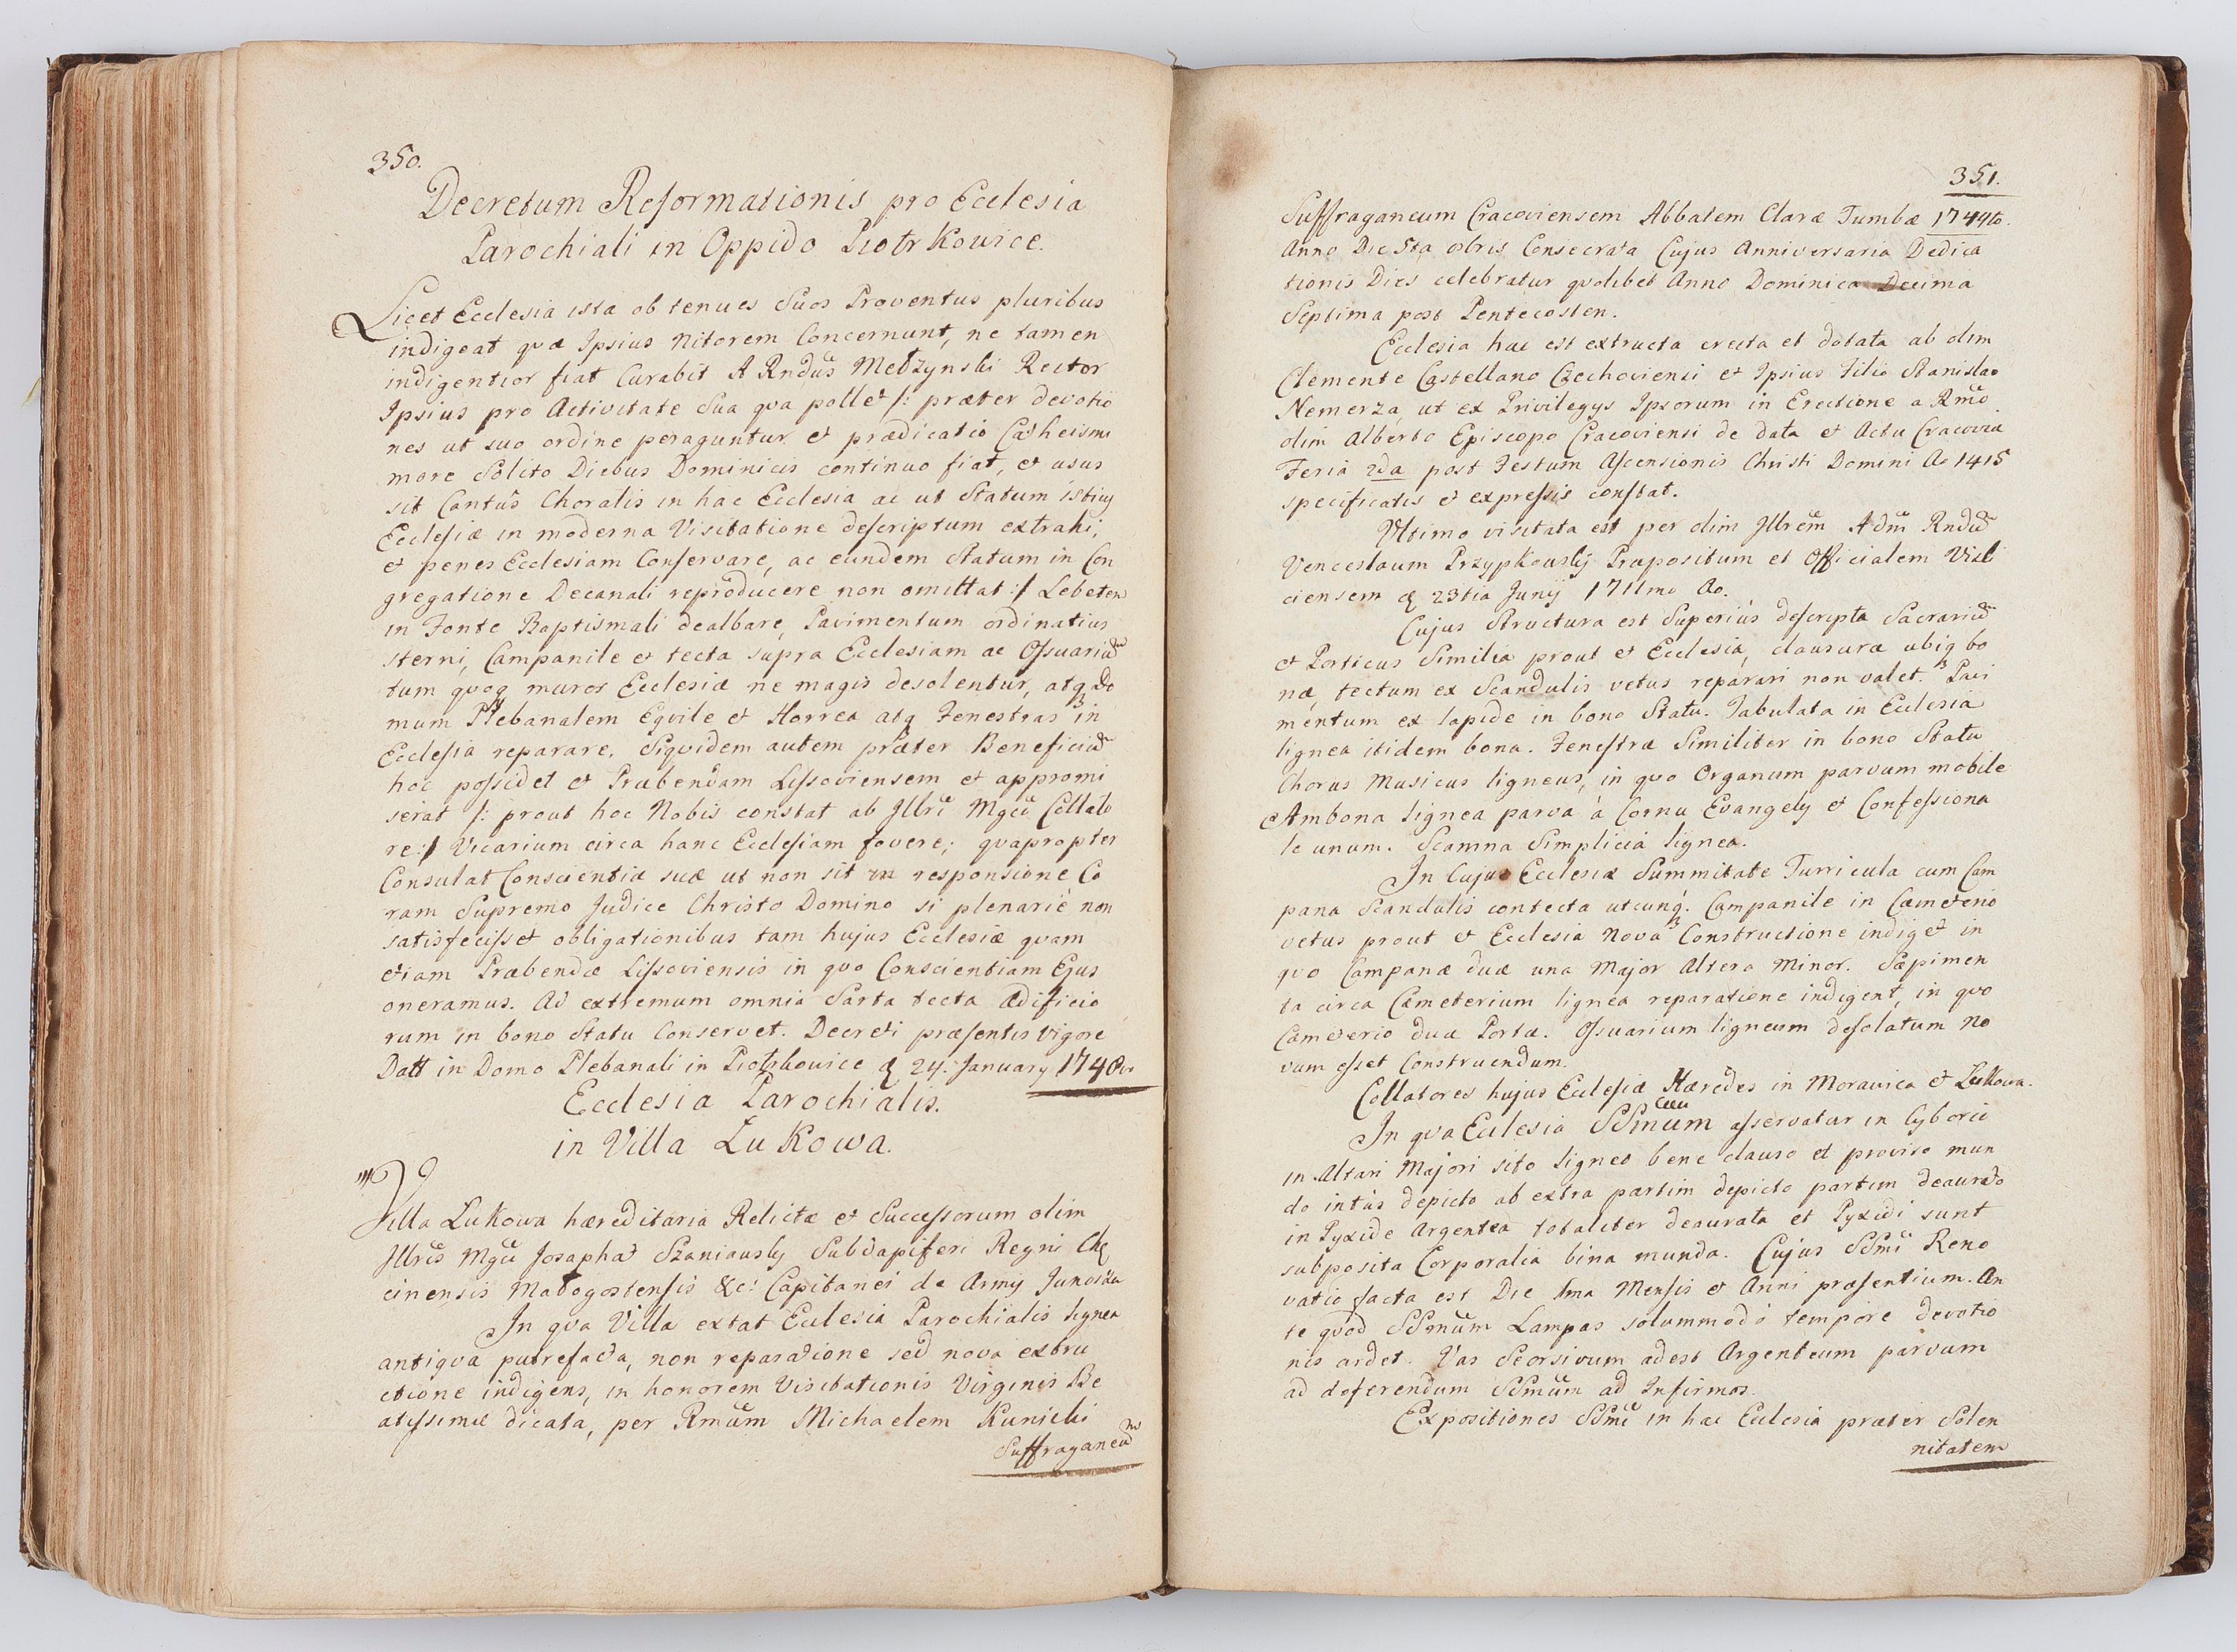 350.
Decretum Reformationis pro Ecclesia
Parochiali in Oppido Piotrkowice.
Licet Ecclesia ista ob tenues Suos Proventus pluribus
indigeat quæ Ipsius Nitorem Concernunt, ne tamen
indigentior fiat Curabit A Rndus Metzynski Rector
Ipsius pro Activitate Sua qua pollet /: præter devotio
nes ut suo ordine peraguntur et prædicatio Cathecismi
more Solito Diebus Dominicis continuo fiat, et usus
sit Cantus Choralis in hac Ecclesia ac ut Statum istius
Ecclesiæ in moderna Visitatione descriptum extrahi,
et penes Ecclesiam Conservare, ac eundem Statum in Con
gregatione Decanali reproducere non omittat :/ Lebetem
in Fonte Baptismali dealbare, Pavimentum ordinatius
sterni, Campanile et tecta supra Ecclesiam ac Ossuariu
tum quoq muros Ecclesiæ ne magis desolentur, atq Do
mum Plebanalem Equile et Horrea atq Fenestras in
Ecclesia reparare. Siquidem autem præter Beneficiu
hoc possidet et Præbendam Lissoviensem et appromi
serat /: prout hoc Nobis constat ab Illri Mgco Collato
re :/ Vicarium circa hanc Ecclesiam fovere; quapropter
Consulat Conscientiæ suæ ut non sit in responsione Co
ram Supremo Judice Christo Domino si plenarie non
satisfecisset obligationibus tam hujus Ecclesiæ quam
etiam Præbendæ Lissoviensis in quo Conscientiam Ejus
oneramus. Ad extremum omnia Sarta tecta Ædificio
rum in bono Statu Conservet. Decreti præsentis vigore
Datt in Domo Plebanali in Piotrkowice 24. January 1748
Ecclesia Parochialis.
in Villa Łukowa.
Villa Lukowa hæreditaria Relictæ et Successorum olim
Illris Mgci Josaphat Szaniawsky Subdapiferi Regni Chę
cinensis Małogostensis &c: Capitanei de Army Junosza
In qua Villa extat Ecclesia Parochialis lignea
antiqua putrefacta, non reparatione sed nova extru
ctione indigens, in honorem Visitationis Virginis Be
atissimæ dicata, per Rmum Michaelem Kunicki
Suffraganeum
351.
Suffraganeum Cracoviensem Abbatem Claræ Tumbæ 1744to.
Anno Die 5ta 8bris Consecrata Cujus Anniversaria Dedica
tionis Dies celebratur quolibet Anno Dominica Decima
Septima post Pentecosten.
Ecclesia hæc est extructa erecta et dotata ab olim
Clemente Castellano Czechoviensi et Ipsius Filio Stanislao
Nemerza, ut ex Privilegys Ipsorum in Erectione a Rmo
olim Alberto Episcopo Cracoviensi de data et Actu Cracoviæ
Feria 2da post Festum Ascensionis Christi Domini Ao 1415
specificatis et expressis constat.
Ultimo visitata est per olim Illrem Adm Rndu
Venceslaum Przypkowsky Præpositum et Officialem Visli
ciensem 23tia Junÿ 1711mo Ao.
Cujus Structura est Superius descripta Sacrariu
et Porticus Similia prout et Ecclesia, clausuræ ubiq bo
næ, tectum ex Scandulis vetus reparari non valet. Pavi
mentum ex lapide in bono Statu. Tabulata in Ecclesia
lignea itidem bona. Fenestræ Similiter in bono Statu
Chorus Musicus ligneus, in quo Organum parvum mobile
Ambona lignea parva à Cornu Evangely et Confessiona
le unum. Scamna Simplicia lignea.
In Cujus Ecclesiæ Summitate Turricula cum Cam
pana Scandulis contecta utcunq. Campanile in Cæmeterio
vetus prout et Ecclesia Nova Constructione indiget in
quo Campanæ duæ una Major Altera Minor. Sæpimen
ta circa Cæmeterium lignea reparatione indigent, in quo
Cæmeterio duæ Portæ. Ossuarium ligneum desolatum No
vum esset Construendum.
Collatores hujus Ecclesiæ Hæredes in Morawica et Łukowa.
In qua Ecclesia SSmum asservatur in Cyborio
in Altari Majori sito ligneo bene clauso et proviso mun
do intus depicto ab extra partim depicto partim deaurato
in Pyxide Argentea totaliter deaurata et Pyxidi sunt
subposita Corporalia bina munda. Cujus SSmi Reno
vatio facta est Die 1ma Mensis et Anni præsentium. An
te quod SSmum Lampas solummodo tempore devotio
nis ardet. Vas Seorsivum adest Argenteum parvum
ad deferendum SSmum ad Infirmos.
Expositiones SSmi in hac Ecclesia præter Solen
nitatem